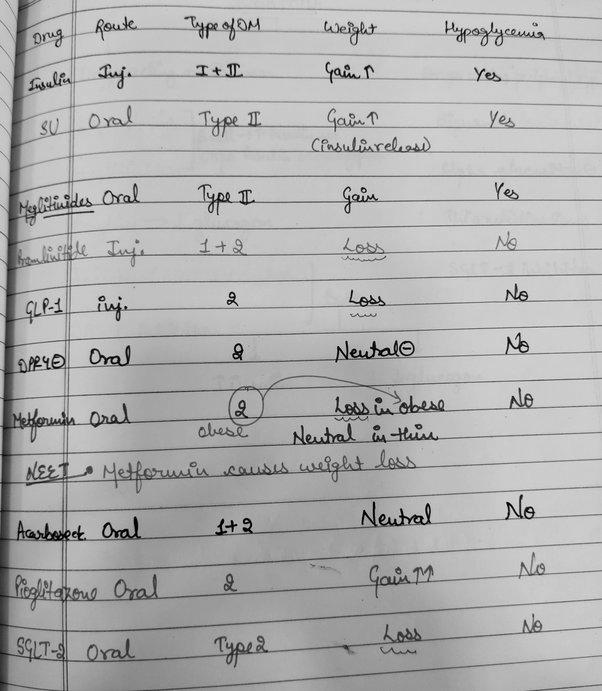 Drug Route Type of DM Weight Hypoglycemia
Insulin Inj. I + II Gain↑ Yes
SU Oral Type II Gain↑ Yes
(insulin release)
Meglitinides Oral Type II Gain Yes
Pramlintide Inj. 1+2 Loss No
GLP-1 inj. 2 Loss No
DPP4⊖ Oral 2 Neutral⊖ No
Metformin Oral 2 Loss in obese No
obese Neutral in thin
NEET • Metformin causes weight loss
Oral 1+2 Neutral No
Pioglitazone Oral 2 Gain↑↑ No
SGLT-2 Oral Type 2 Loss No